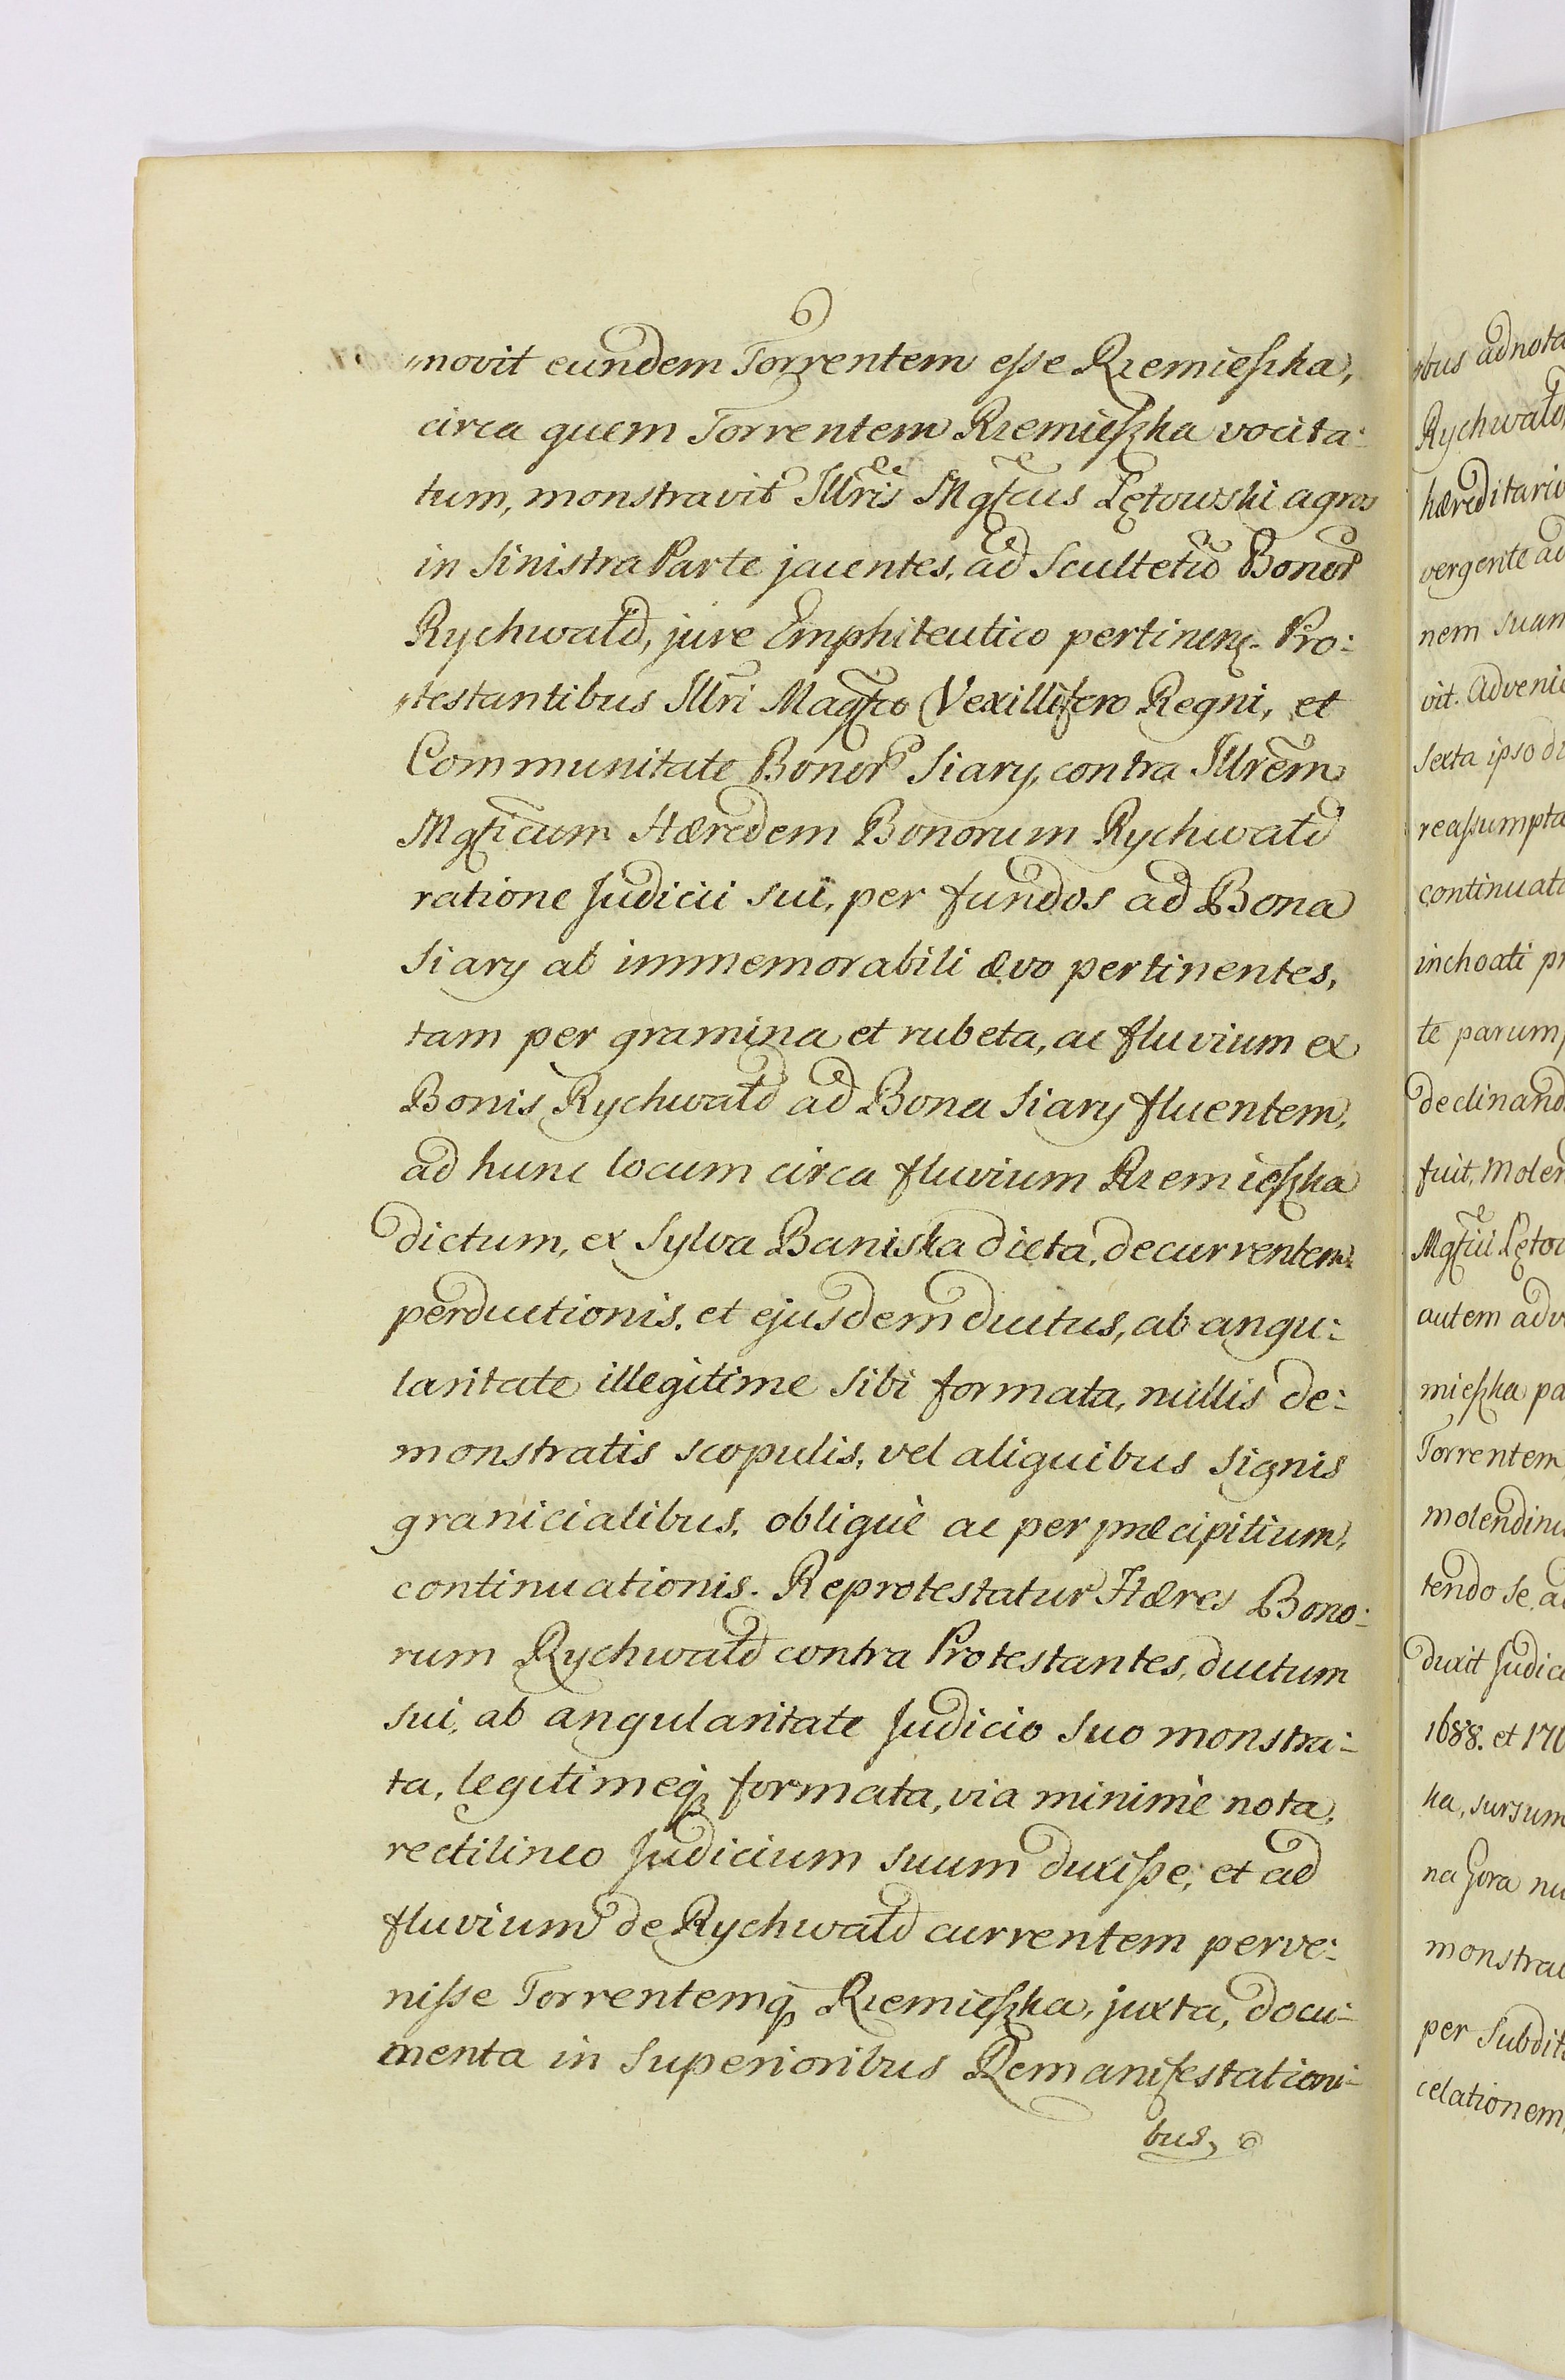 novit eundem Torrentem esse Rzemieszka,
circa quem Torrentem Rzemieszka vocita:
tum, monstravit Illris Mgfcus Łętowski agros
in sinistra Parte jacentes, ad Scultetiã Bonor
Rychwałd, jure Emphiteutico pertinen. Pro:
testantibus Illri Magfco Vexillifero Regni, et
Communitate Bonor Siary, contra Illrem
Mgficum Hæredem Bonorum Rychwałd
ratione Judicii sui, per fundos ad Bona
Siary ab immemorabili ævo pertinentes,
tam per gramina et rubeta, ac fluvium ex
Bonis Rychwałd ad Bona Siary fluentem,
ad hunc locum circa fluvium Rzemieszka
dictum, ex Sylva Baniska dicta, decurrentem
perductionis, et ejusdem ductus, ab angu:
laritate illegitime sibi formata, nullis de:
monstratis scopulis, vel aliquibus signis
granicialibus, obliquè ac per præcipitium,
continuationis. Reprotestatur Hæres Bono:
rum Rychwałd contra Protestantes, ductum
sui, ab angularitate Judicio suo monstra:
ta, legitimeq; formata, via minimè nota,
rectilineo Judicium suum duxisse, et ad
fluvium de Rychwałd currentem perve:
nisse Torrentemq; Rzemieszka, juxta, docu:
menta in superioribus Remanifestationi:
bus,
bus adnota
Rychwałd,
hæreditario
vergente ad
nem suam
vit. Adveni
Sexta ipso di
reassumpta
continuata
inchoati pr
te parum
declinand
fuit, Molen
Mgficii Łętow
autem adv
mieszka pa
Torrentem
molendinu
tendo se, a
duxit Judici
1688. et 170
ka, sursum
na Gora nu
monstra
per Subdit
celationem,